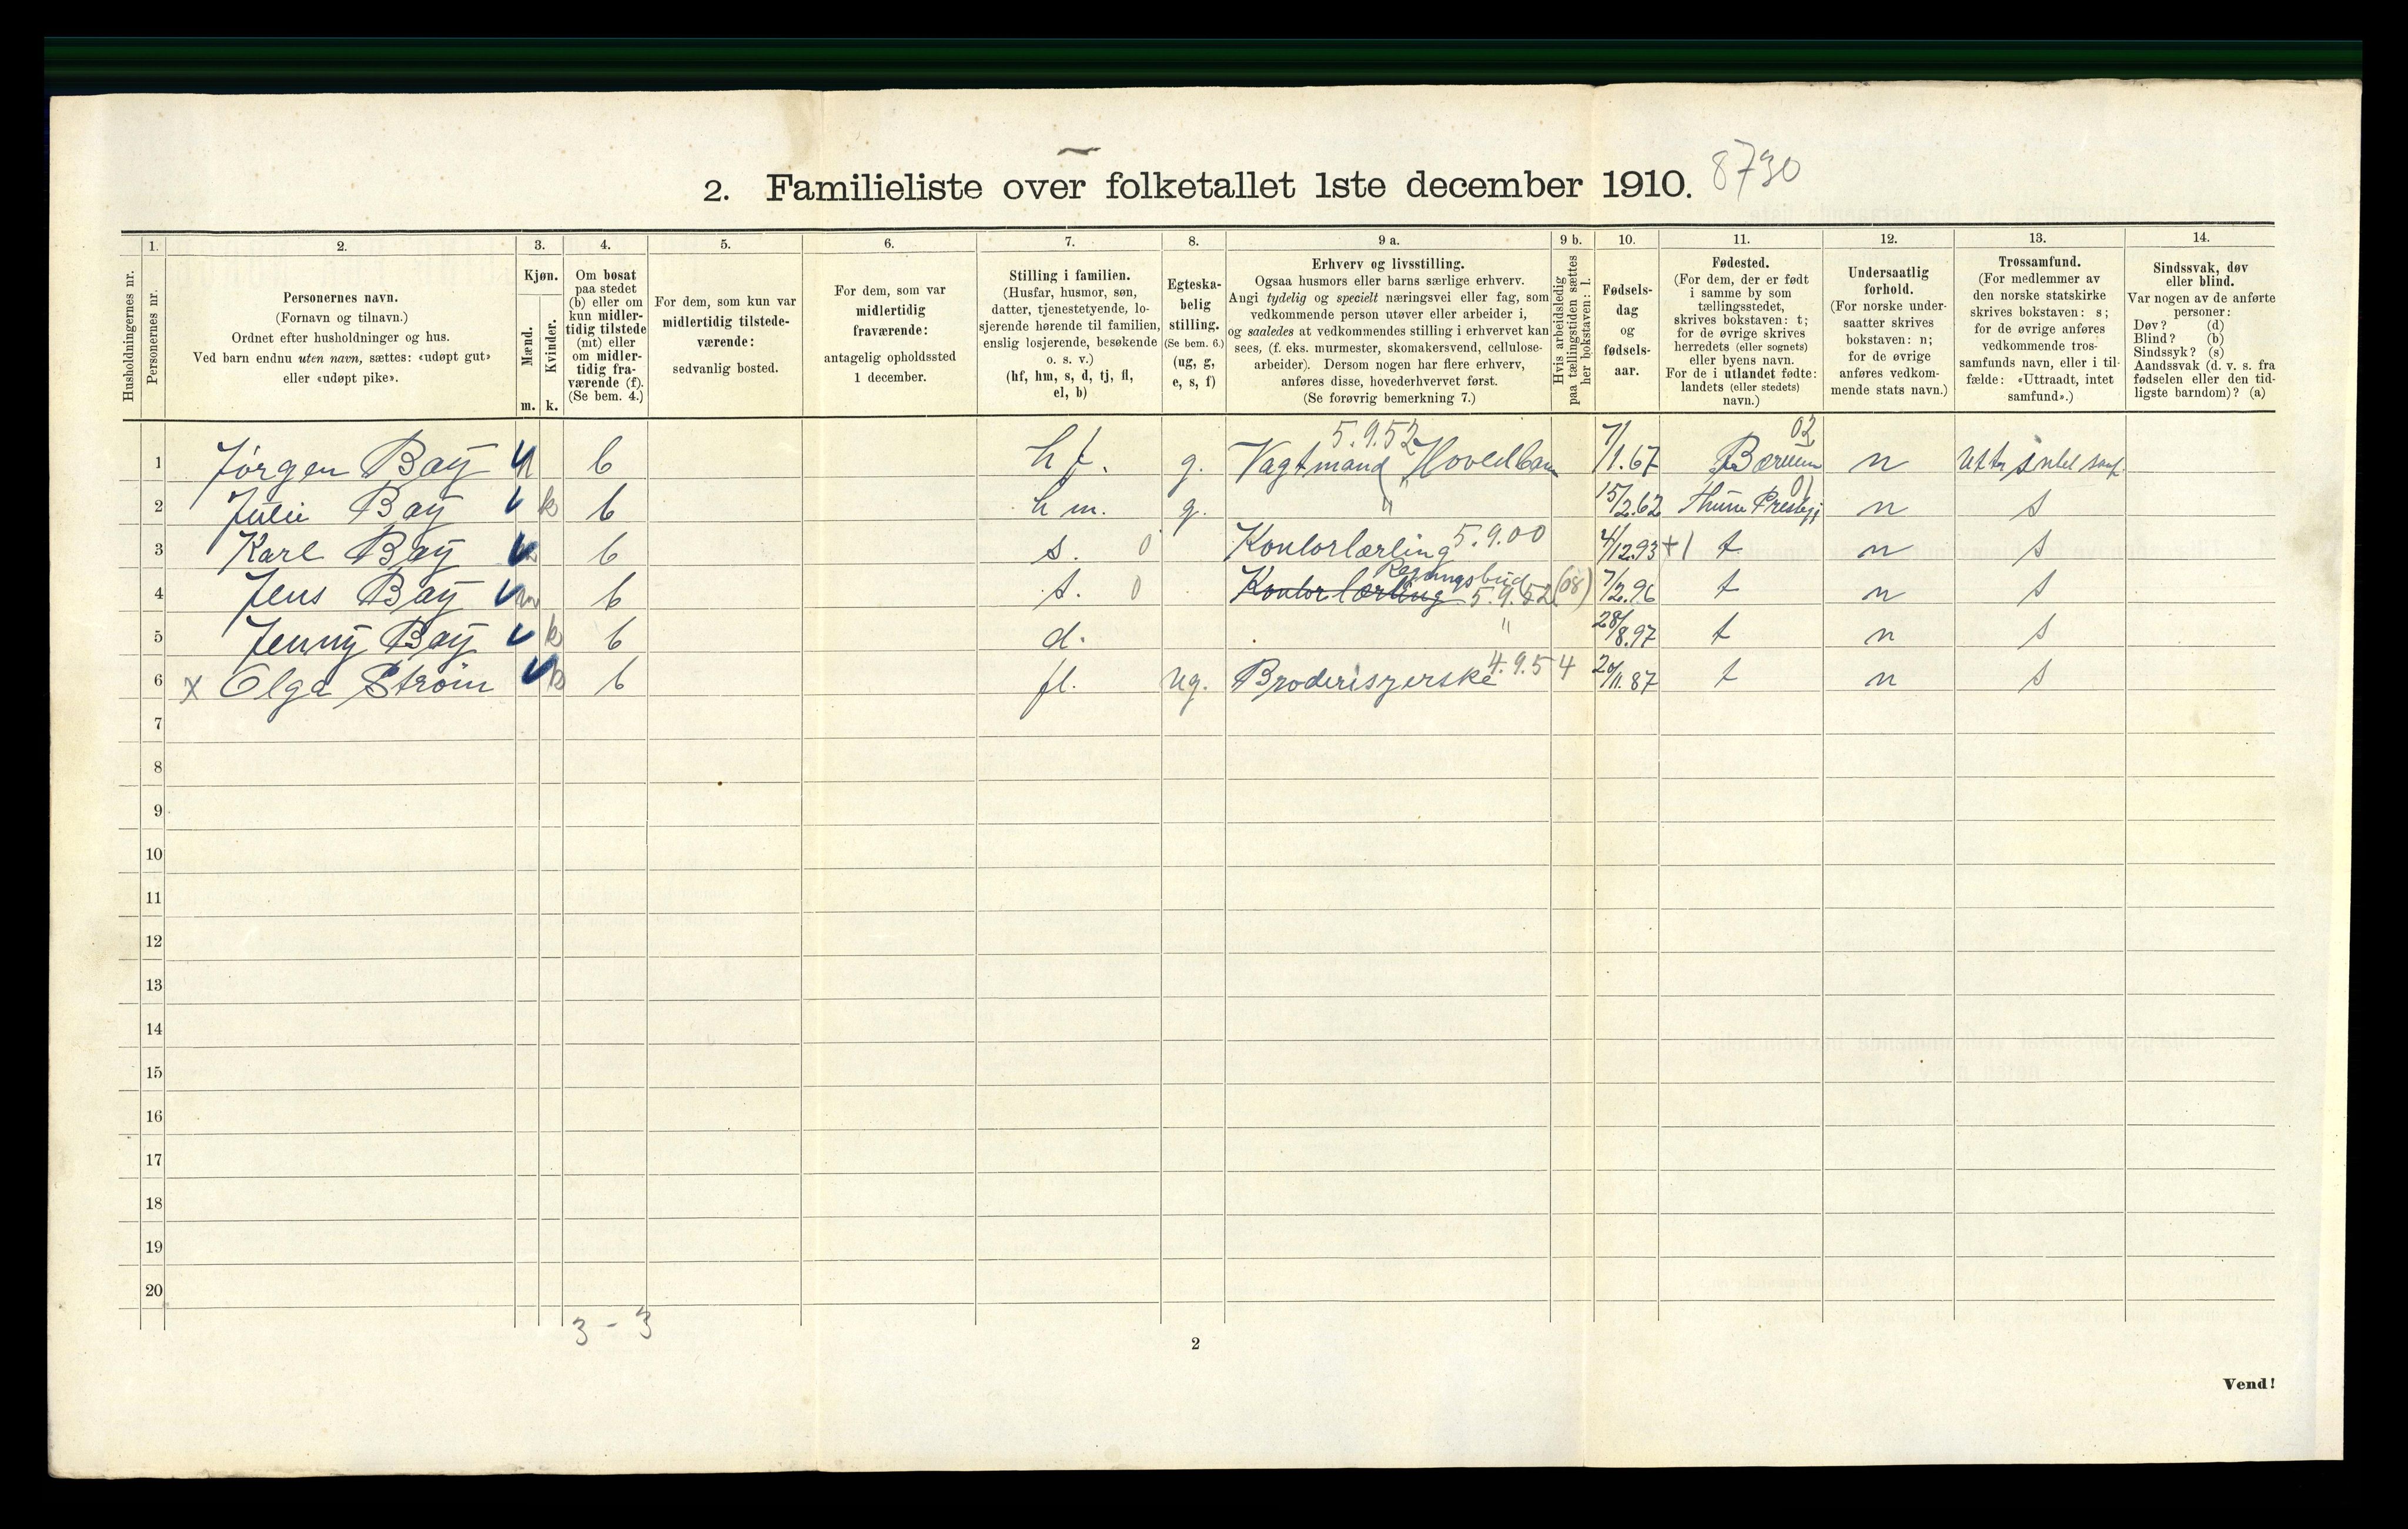 2. Familieliste over folketallet 1ste december 1910. 8730
Husholdningernes nr.
1. Personernes nr.
2. Personernes navn.
(Fornavn og tilnavn.)
Ordnet efter husholdninger og hus.
Ved barn endnu uten navn, sættes: «udøpt gut»
eller «udøpt pike».
3. Kjøn.
Mænd. Kvinder.
m. k.
4. Om bosat
paa stedet
(b) eller om
kun midler-
tidig tilstede
(mt) eller
om midler-
tidig fra-
værende (f).
(Se bem. 4.)
5. For dem, som kun var
midlertidig tilstede-
værende:
sedvanlig bosted.
6. For dem, som var
midlertidig
fraværende:
antagelig opholdssted
1 december.
7. Stilling i familien.
(Husfar, husmor, søn,
datter, tjenestetyende, lo-
sjerende hørende til familien,
enslig losjerende, besøkende
o. s. v.)
(hf, hm, s, d, tj, fl,
el, b)
8. Egteska-
belig
stilling.
(Se bem. 6.)
(ug, g,
e, s, f)
9 a. Erhverv og livsstilling.
Ogsaa husmors eller barns særlige erhverv.
Angi tydelig og specielt næringsvei eller fag, som
vedkommende person utøver eller arbeider i,
og saaledes at vedkommendes stilling i erhvervet kan
sees, (f. eks. murmester, skomakersvend, cellulose-
arbeider). Dersom nogen har flere erhverv,
anføres disse, hovederhvervet først.
(Se forøvrig bemerkning 7.)
9 b. Hvis arbeidsledig
paa tællingstiden sættes
her bokstaven: l.
10. Fødsels-
dag
og
fødsels-
aar.
11. Fødested.
(For dem, der er født
i samme by som
tællingsstedet,
skrives bokstaven: t;
for de øvrige skrives
herredets (eller sognets)
eller byens navn.
For de i utlandet fødte:
landets (eller stedets)
navn.)
12. Undersaatlig
forhold.
(For norske under-
saatter skrives
bokstaven: n;
for de øvrige
anføres vedkom-
mende stats navn.)
13. Trossamfund.
(For medlemmer av
den norske statskirke
skrives bokstaven: s;
for de øvrige anføres
vedkommende tros-
samfunds navn, eller i til-
fælde: «Uttraadt, intet
samfund».)
14. Sindssvak, døv
eller blind.
Var nogen av de anførte
personer:
Døv? (d)
Blind? (b)
Sindssyk? (s)
Aandssvak (d. v. s. fra
fødselen eller den tid-
ligste barndom)? (a)
5.9.52 03
1 Jörgen Baÿ b hf. g. Vagtmand Hovedban 7/1.67 Bærum n Uttr intet samf.
01
2 Julie Baÿ k b hm. g. " 15/2.62 n s
3 Karl Baÿ b s. 0 Kontorlærling 5.9.00 4/12.93 +1 t n s
4 Jens Baÿ m b s. 0 Kontorlærling 5.9.52 (08) 7/2.96 t n s
5 Jenny Baÿ k b d. " 28/8.97 t n s
6 x Olga Ström k b fl. ug. Broderisyerske 4.9.54 20/11.87 t n s
7
8
9
10
11
12
13
14
15
16
17
18
19
20
3 - 3
2
Vend!